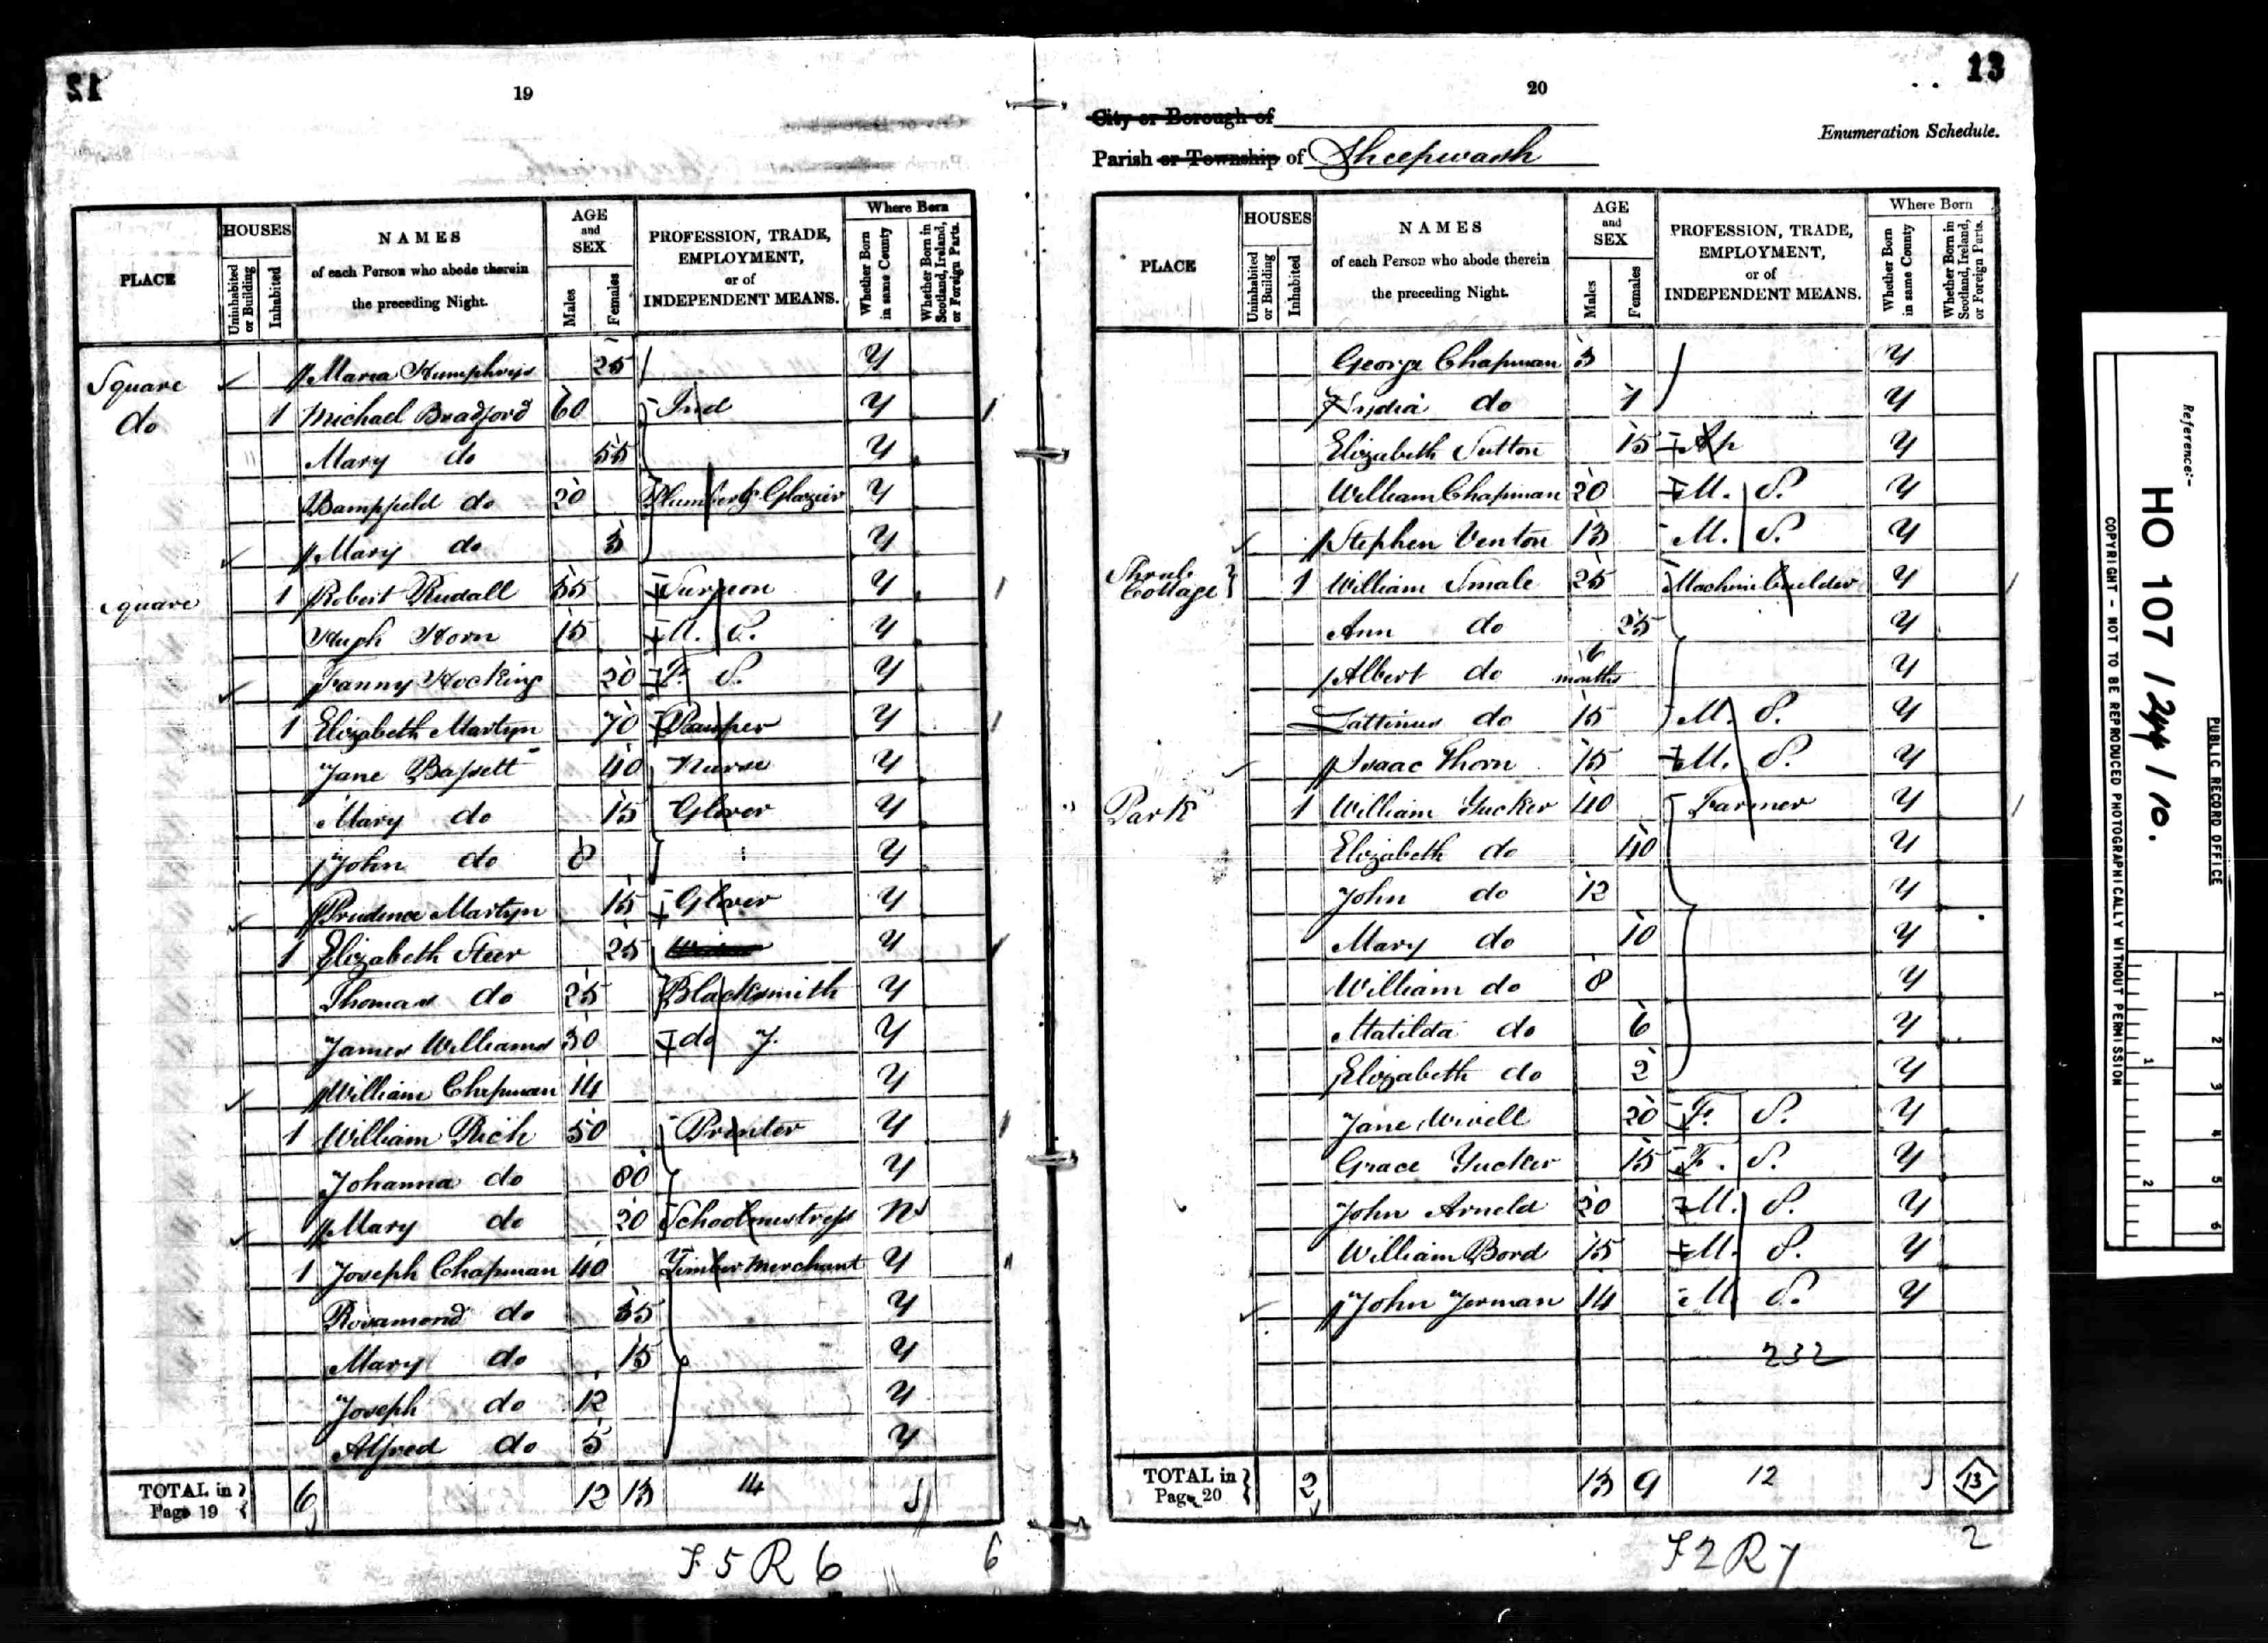 12
19
PLACE
HOUSES
Uninhabited or Building
Inhabited
NAMES
of each Person who abode therein
the preceding Night.
AGE
and
SEX
Males
Females
PROFESSION, TRADE,
EMPLOYMENT,
or of
INDEPENDENT MEANS.
Where Born
Whether Born in same County
Whether Born in Scotland, Ireland, or Foreign Parts.
Square Maria Humphrys 25 Y
do 1 Michael Bradford 60 Ind Y
Mary do 55 Y
Bampfield do 20 Plumber & Glazier Y
Mary do 3 Y
Square 1 Robert Rudall 55 Surgeon Y
Hugh Horn 15 M. S. Y
Fanny Hocking 20 F. S. Y
1 Elizabeth Martyn 70 Pauper Y
Jane Bassett 40 Nurse Y
Mary do 15 Glover Y
John do 8 Y
Prudence Martyn 15 Glover Y
1 Elizabeth Steer 25 Y
Thomas do 25 Blacksmith Y
James Williams 30 do J. Y
William Chapman 14 Y
1 William Rich 50 Printer Y
Johanna do 80 Y
Mary do 20 Schoolmistress N
1 Joseph Chapman 40 Timber Merchant Y
Rosamond do 35 Y
Mary do 15 Y
Joseph do 12 Y
Alfred do 5 Y
TOTAL in
Page 19
6 12 13 14
F 5 R 6
6
13
20
City or Borough of
Enumeration Schedule.
Parish or Township of Sheepwash
PLACE
HOUSES
Uninhabited or Building
Inhabited
NAMES
of each Person who abode therein
the preceding Night.
AGE
and
SEX
Males
Females
PROFESSION, TRADE,
EMPLOYMENT,
or of
INDEPENDENT MEANS.
Where Born
Whether Born in same County
Whether Born in Scotland, Ireland, or Foreign Parts.
George Chapman 3 Y
Lydia do 1 Y
Elizabeth Sutton 15 Ap Y
William Chapman 20 M. S. Y
Stephen Venton 13 M. S. Y
Shrub Cottage 1 William Smale 25 Machine builder Y
Ann do 25 Y
Albert do 6 months Y
do 15 M. S. Y
Isaac Thorn 15 M. S. Y
Park 1 William Tucker 40 Farmer Y
Elizabeth do 40 Y
John do 12 Y
Mary do 10 Y
William do 8 Y
Matilda do 6 Y
Elizabeth do 2 Y
Jane 20 F. S. Y
Grace Tucker 15 F. S. Y
John Arnold 20 M. S. Y
William Bord 15 M. S. Y
John Jerman 14 M. S. Y
232
TOTAL in
Page 20
2 13 9 12
13
2
F 2 R 7
Reference:-
HO 107 / 244 / 10.
PUBLIC RECORD OFFICE
COPYRIGHT - NOT TO BE REPRODUCED PHOTOGRAPHICALLY WITHOUT PERMISSION
1 2 3 4 5 6
1 2